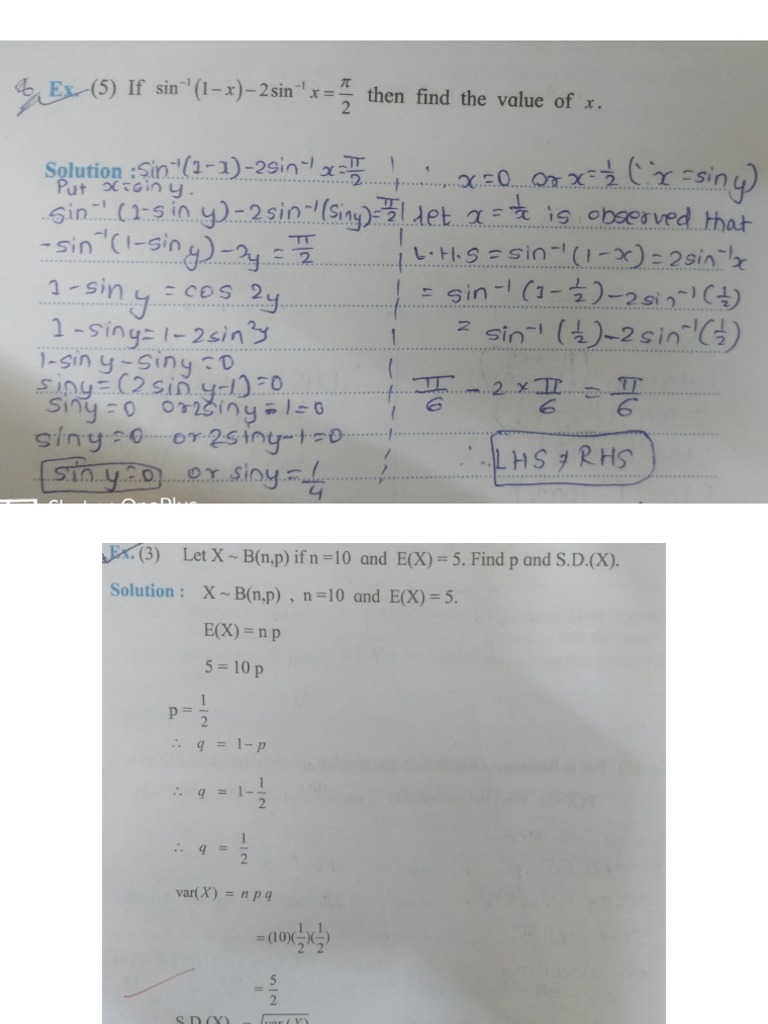 Ex. (5) If sin⁻¹(1−x)−2sin⁻¹x=π/2 then find the value of x.
Solution : Sin⁻¹(1-x)-2sin⁻¹ x=π/2
Put x=sin y.
sin⁻¹ (1-sin y)-2sin⁻¹(siny)=π/2
-sin⁻¹(1-sin y)-2y = π/2
1-sin y = cos 2y
1-siny=1-2sin²y
1-sin y-siny=0
siny=(2sin y-1)=0
siny=0 or2siny=1=0
sin y=0 or 2siny-1=0
sin y=0 or siny=1/4
∴ x=0 or x=1/2 (∵x=siny)
let x=1/2 is observed that
L.H.S = sin⁻¹(1-x)=2sin⁻¹x
= sin⁻¹ (1-1/2)-2sin⁻¹(1/2)
= sin⁻¹ (1/2)-2sin⁻¹(1/2)
π/6 - 2×π/6 = π/6
∴ LHS ≠ RHS
Ex. (3) Let X ~ B(n,p) if n =10 and E(X) = 5. Find p and S.D.(X).
Solution : X ~ B(n,p) , n =10 and E(X) = 5.
E(X) = n p
5 = 10 p
p = 1/2
∴ q = 1− p
∴ q = 1−1/2
∴ q = 1/2
var(X) = n p q
=(10)(1/2)(1/2)
= 5/2
S.D.(X) = √var(X)